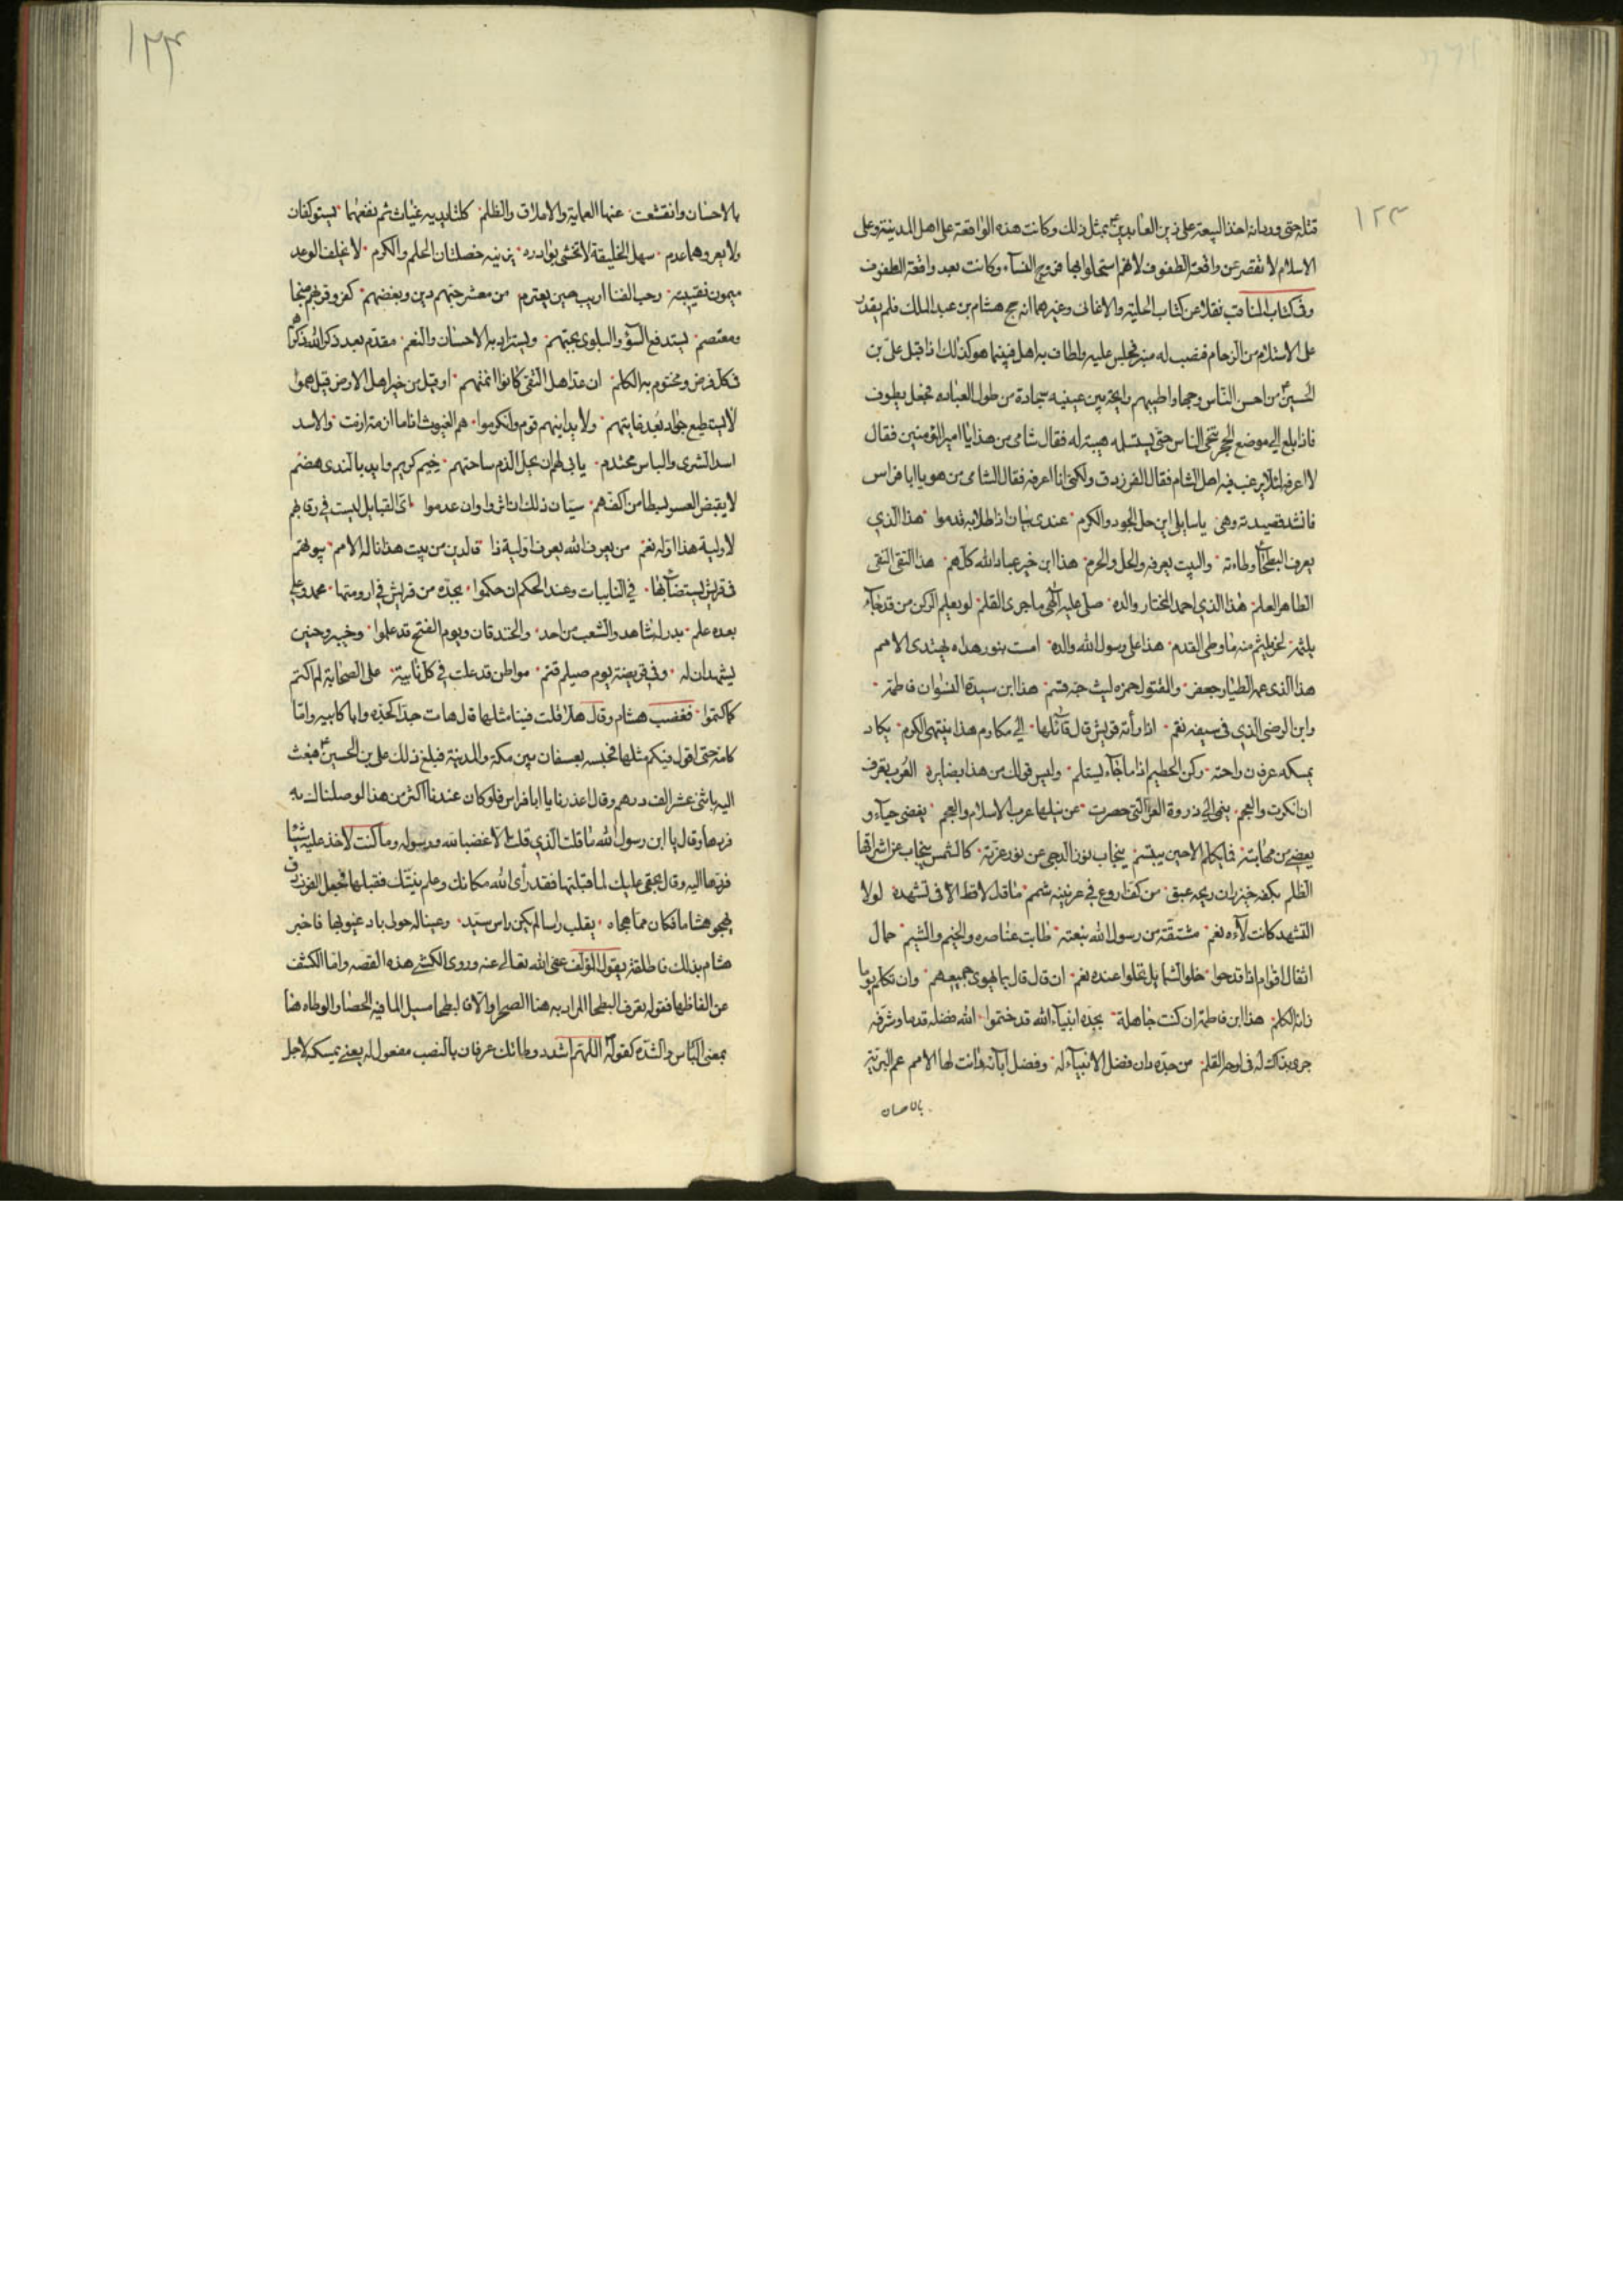 ١٢٣
قتله حتى وردانه اخذ البيعة على زين العابدين ع بمثل ذلك وكانت هذه الواقعة على اهل المدينة وعلى
الاسلام لا تقصر عن واقعة الطفوف لانهم استحلوا بها فروج النساء وكانت بعد واقعة الطفوف
وفى كتاب المناقب نقلا عن كتاب الحلية والاغانى وغيرهما انه حج هشام بن عبد الملك فلم يقدر
على الاستلام من الزحام فنصب له منبر فجلس عليه واطاف به اهل فبينما هو كذلك اذا قبل على بن
الحسين ع من احسن الناس وجها واطيبهم رايحة بين عينيه سجادة من طول العبادة فجعل يطوف
فاذا بلغ الى موضع الحجر تنحى الناس حتى يستلمه هيبة له فقال شامى من هذا يا امير المؤمنين فقال
لا اعرفه لئلا يرغب فيه اهل الشام فقال الفرزدق ولكنى انا اعرفه فقال الشامى من هو يا ابا فراس
فانشد قصيدته وهى يا سايلى اين حل الجود والكرم عندى بيان اذا طلابه قدموا هذا الذي
يعرف البطحاء وطاءته والبيت يعرفه والحل والحرم هذا ابن خير عباد الله كلهم هذا التقى النقى
الطاهر العلم هذا الذي احمد المختار والده صلى عليه الهى ما جرى القلم لو يعلم الركن من قد جاء
يلثمه لخر يلثم منه ما وطى القدم هذا على رسول الله والده امست بنور هداه يهتدى الامم
هذا الذى عمه الطيار جعفر والمقتول حمزه ليث حبه قسم هذا ابن سيدة النسوان فاطمة
وابن الوصى الذي فى سيفه نقم اذا رأته قريش قال قائلها الى مكارم هذا ينتهى الكرم يكاد
يمسكه عرفان راحته ركن الحطيم اذا ما جاء يستلم وليس قولك من هذا بضايره العرب تعرف
من انكرت والعجم ينمى الى ذروة العز التى حصرت عن نيلها عرب الاسلام والعجم يغضى حياء و
يغضى من مهابته فما يكلم الا حين يبتسم ينجاب نور الدجى عن نور غرته كالشمس ينجاب عن اشراقها
الظلم بكفه خيزران ريحه عبق من كف اروع فى عرنينه شمم ما قال لا قط الا فى تشهده لولا
التشهد كانت لآءه نعم مشتقة من رسول الله نبعته طابت عناصره والخيم والشيم حمال
اثقال اقوام اذا قدحوا حلو الشمايل تحلوا عنده نعم ان قال قال بما يهوى جميعهم وان تكلم يوما
زانه الكلم هذا ابن فاطمة ان كنت جاهله بجده انبياء الله قد ختموا الله فضله قدما وشرفه
جرى بذاك له فى لوحه القلم من جده دان فضل الانبياء له وفضل ابآئه دانت لها الامم عم البرية
بالاحسان
١٢٤
بالاحسان وانقشعت عنها العماية والاملاق والظلم كلتا يديه غياث عم نفعهما يستوكفان
ولا يعروهما عدم سهل الخليقة لا تخشى بوادره يزينه خصلتان الحلم والكرم لا يخلف الوعد
ميمون نقيبته رحب الفنا اريب حين يعترم من معشر حبهم دين وبغضهم كفر وقربهم منجا
ومعتصم يستدفع السؤ والبلوى بحبهم ويستزاد به الاحسان والنعم مقدم بعد ذكر الله ذكرهم
فى كل فرض ومختوم به الكلم ان عد اهل التقى كانوا ائمتهم او قيل من خير اهل الارض قيل هموا
لا يستطيع جواد بعد غايتهم ولا يدانيهم قوم وان كرموا هم الغيوث اذا ما ازمة ازمت والاسد
اسد الشرى والباس محتدم يابى لهم ان يحل الذم ساحتهم خيم كريم وايد بالندى هضم
لا يقبض العسر بسطا من اكفهم سيان ذلك ان اثروا وان عدموا اى القبايل ليست فى رقابهم
لاولية هذا اوله نعم من يعرف الله يعرف اولية ذا فالدين من بيت هذا ناله الامم بيوتهم
فى قريش يستضاء بها فى النايبات وعند الحكم ان حكموا بجده من قريش فى ارومتها محمد وعلى
بعده علم بدر له شاهد والشعب من احد والخندقان ويوم الفتح قد علموا وخيبر وحنين
يشهدان له وفى قريضة يوم صيلم قتم مواطن قد علت فى كل نائبة على الصحابة لم اكتم
كما كتموا فغضب هشام وقال هلا قلت فينا مثلها قال هات جدا كجده وابا كابيه واما
كامه حتى اقول فيكم مثلها فحبسه بعسفان بين مكة والمدينة فبلغ ذلك على بن الحسين ع فبعث
اليه باثنى عشر الف درهم وقال اعذرنا يا ابا فراس فلو كان عندنا اكثر من هذا لوصلناك به
فردها وقال يا ابن رسول الله ما قلت الذي قلت الا غضبا لله ورسوله وما كنت لاخذ عليه شيئا
فردها اليه وقال بحقى عليك لما قبلتها فقد رأى الله مكانك وعلم نيتك فقبلها فجعل الفرزدق
يهجو هشاما فكان مما هجاه يقلب راسا لم يكن راس سيد وعينا له حولا باد عيوبها فاخبر
هشام بذلك فاطلقه يقول المؤلف عفى الله تعالى عنه وروى الكشى هذه القصه واما الكشف
عن الفاظها فقوله يعرف البطحا المراد به هذا الصحرا والا فالبطحا مسيل الما فيه الحصا والوطاه هنا
بمعنى الباس والشدة كقوله اللهم اشدد وطائك عرفان بالنصب مفعول له يعنى يمسكه لاجل